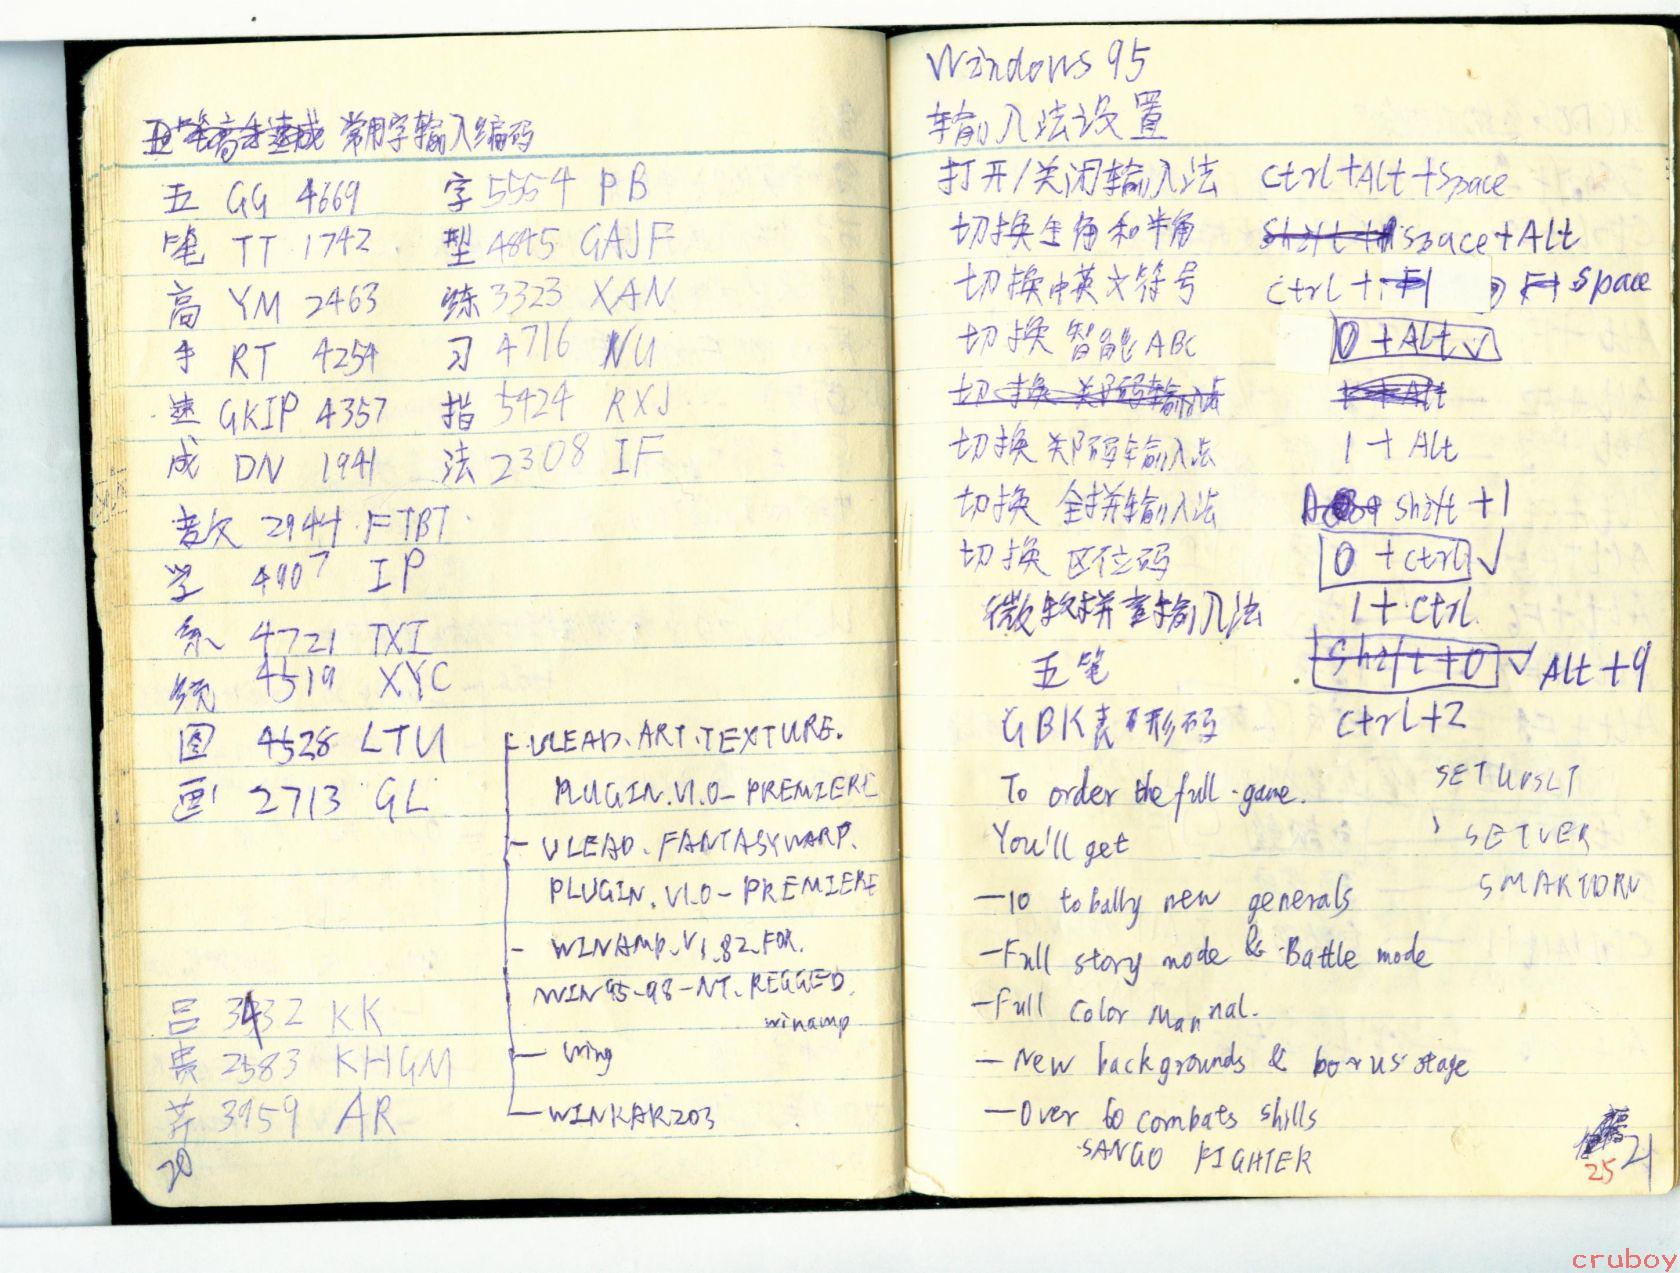 五笔高手速成 常用字输入编码
五 GG 4669 字 5554 PB
笔 TT 1742 型 4845 GAJF
高 YM 2463 练 3323 XAN
手 RT 4254 习 4716 NU
速 GKIP 4357 指 5424 RXJ
成 DN 1941 法 2308 IF
2944 FTBT
学 4907 IP
系 4721 TXI
统 4519 XYC
图 4528 LTU
画 2713 GL
吕 3432 KK
贵 2583 KHGM
芹 3959 AR
20
ULEAD.ART.TEXTURE.
PLUGIN.V1.0-PREMIERE
ULEAD.FANTASYWARP.
PLUGIN.V1.0-PREMIERE
- WINAMP.V1.82.FOR.
WIN95-98-NT.REGGED.
winamp
- Wing
- WINRAR203
Windows 95
输入法设置
打开/关闭输入法 Ctrl+Alt+Space
切换全角和半角 Shift + Space+Alt
切换中英文符号 Ctrl + F1 Space
切换智能ABC 0 + Alt ✓
切换 郑码输入法 1 + Alt
切换 郑码输入法 1 + Alt
切换 全拼输入法 Shift +1
切换 区位码 0 + ctrl ✓
微软拼音输入法 1 + Ctrl
五笔 Shift + 0 ✓ Alt +9
GBK表形码 Ctrl+2
To order the full game. SETUPSLT
You'll get SETVER
-10 totally new generals SMARTDRV
-Full story mode & Battle mode
-Full Color Mannal.
- New backgrounds & bonus stage
-Over 60 combats skills
SANGO FIGHTER
25 21
cruboy